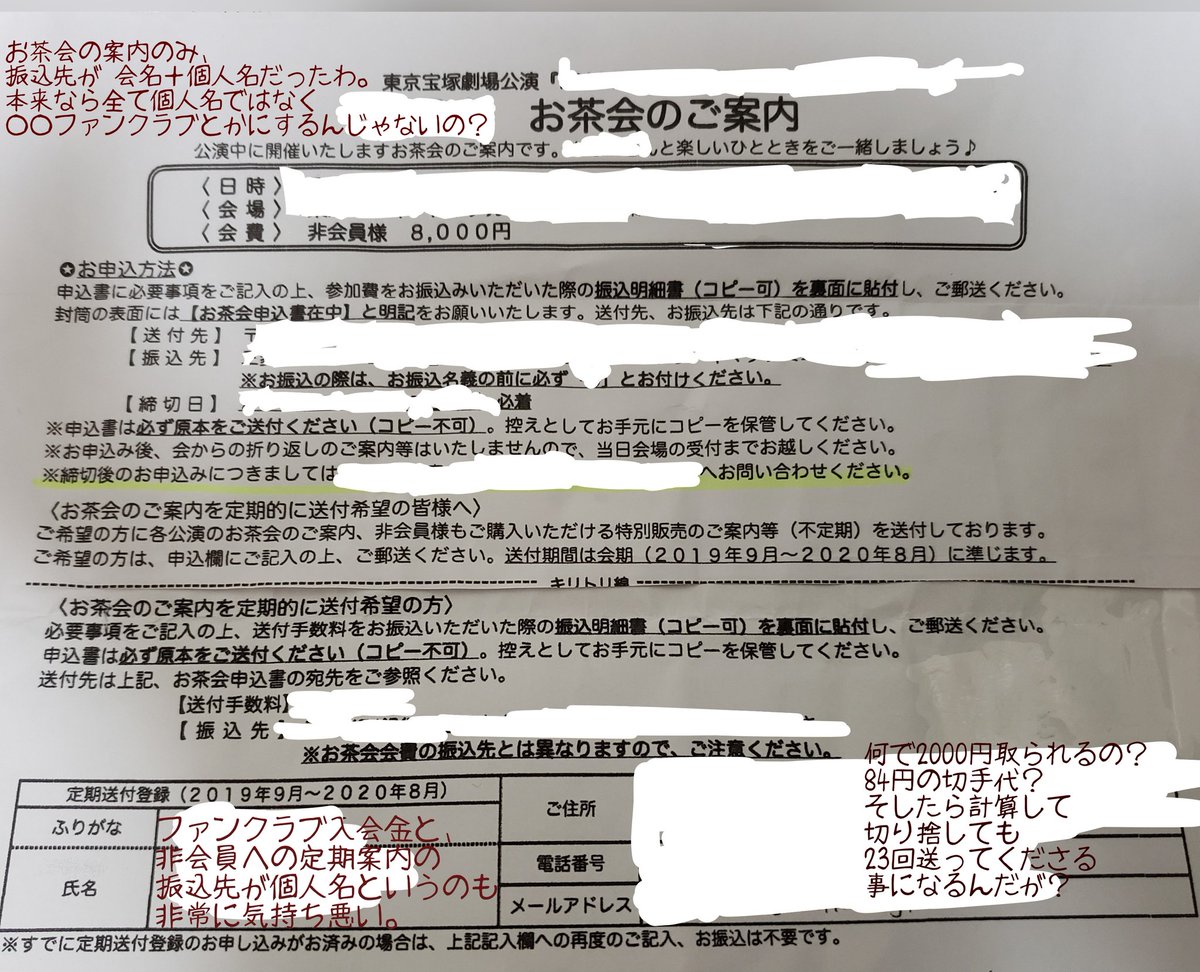 お茶会の案内のみ、
振込先が 会名＋個人名だったわ。
本来なら全て個人名ではなく
〇〇ファンクラブとかにするんじゃないの？
東京宝塚劇場公演『
お茶会のご案内
公演中に開催いたしますお茶会のご案内です。
んと楽しいひとときをご一緒しましょう♪
〈日時〉
〈会場〉
〈会費〉 非会員様 8,000円
✪お申込方法✪
申込書に必要事項をご記入の上、参加費をお振込みいただいた際の振込明細書（コピー可）を裏面に貼付し、ご郵送ください。
封筒の表面には【お茶会申込書在中】と明記をお願いいたします。送付先、お振込先は下記の通りです。
【送付先】〒
【振込先】
※お振込の際は、お振込名義の前に必ず 」とお付けください。
【締切日】 必着
※申込書は必ず原本をご送付ください（コピー不可）。控えとしてお手元にコピーを保管してください。
※お申込み後、会からの折り返しのご案内等はいたしませんので、当日会場の受付までお越しください。
※締切後のお申込みにつきましては へお問い合わせください。
〈お茶会のご案内を定期的に送付希望の皆様へ〉
ご希望の方に各公演のお茶会のご案内、非会員様もご購入いただける特別販売のご案内等（不定期）を送付しております。
ご希望の方は、申込欄にご記入の上、ご郵送ください。送付期間は会期（2019年9月～2020年8月）に準じます。
キリトリ線
〈お茶会のご案内を定期的に送付希望の方〉
必要事項をご記入の上、送付手数料をお振込いただいた際の振込明細書（コピー可）を裏面に貼付し、ご郵送ください。
申込書は必ず原本をご送付ください（コピー不可）。控えとしてお手元にコピーを保管してください。
送付先は上記、お茶会申込書の宛先をご参照ください。
【送付手数料】
【振込先
※お茶会会費の振込先とは異なりますので、ご注意ください。
何で2000円取られるの？
84円の切手代？
そしたら計算して
切り捨しても
23回送ってくださる
事になるんだが？
定期送付登録（2019年9月～2020年8月）
ふりがな
氏名
ファンクラブ入会金と、
非会員への定期案内の
振込先が個人名というのも
非常に気持ち悪い。
ご住所
電話番号
メールアドレス
※すでに定期送付登録のお申し込みがお済みの場合は、上記記入欄への再度のご記入、お振込は不要です。